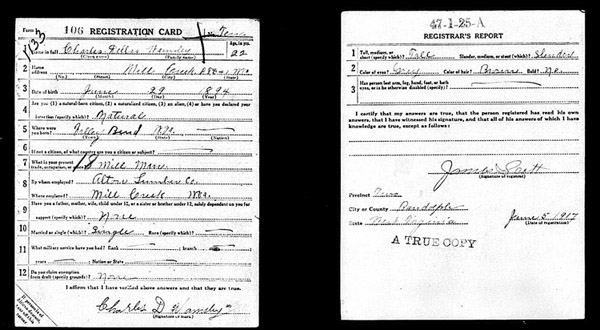 Form 1 106 REGISTRATION CARD
1 Name in full Charles Age, in yrs. 22
(Given name) (Family name)
2 Home address Mill Creek
(No.) (Street) (City) (State)
3 Date of birth June 29 1894
(Month) (Day) (Year)
4 Are you (1) a natural-born citizen, (2) a naturalized citizen, (3) an alien, (4) or have you declared your
intention (specify which)? Natural
5 Where were you born? Valley Bend
(Town) (State) (Nation)
6 If not a citizen, of what country are you a citizen or subject?
7 What is your present trade, occupation, or office? 18 Mill Man
8 By whom employed? Alton Lumber Co.
Where employed? Mill Creek W.Va.
9 Have you a father, mother, wife, child under 12, or a sister or brother under 12, solely dependent on you for
support (specify which)? None
10 Married or single (which)? Single Race (specify which)?
11 What military service have you had? Rank branch
years Nation or State
12 Do you claim exemption from draft (specify grounds)? None
I affirm that I have verified above answers and that they are true.
Charles D Hamsley
(Signature or mark)
47-1-25-A
REGISTRAR'S REPORT
1 Tall, medium, or short (specify which)? Tall Slender, medium, or stout (which)? Slender
2 Color of eyes? Gray Color of hair? Brown Bald? No
3 Has person lost arm, leg, hand, foot, or both eyes, or is he otherwise disabled (specify)?
I certify that my answers are true, that the person registered has read his own
answers, that I have witnessed his signature, and that all of his answers of which I have
knowledge are true, except as follows:
James Scott
(Signature of registrar)
Precinct Two
City or County Randolph
State West Virginia June 5, 1917
(Date of registration)
A TRUE COPY